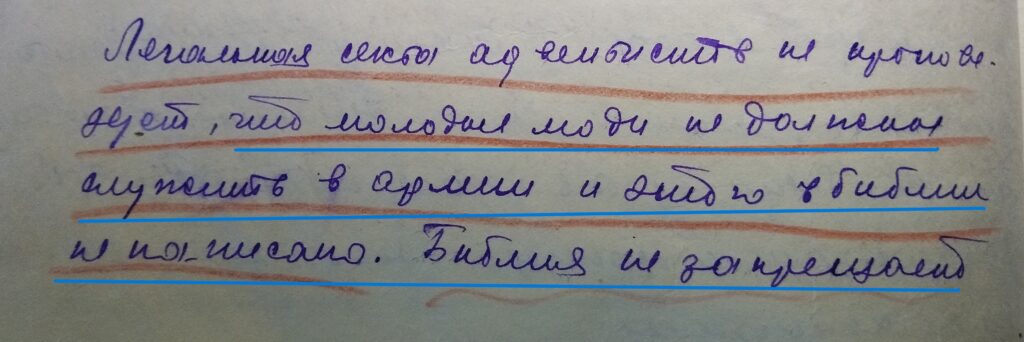 Легальная секта адвентистов не пропове-
дует, что молодые люди не должны
служить в армии и этого в библии
не написано. Библия не запрещает